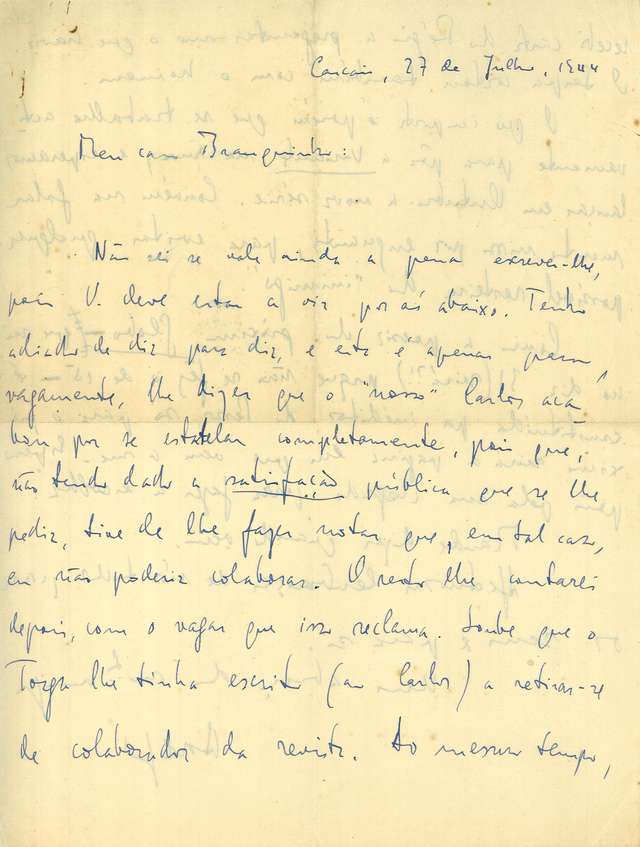 Cascais, 27 de Julho, 1944
Meu caro Branquinho:
Não sei se vale ainda a pena escrever-lhe,
pois V. deve estar a vir por aí abaixo. Tenho
adiado de dia para dia, e esta é apenas para,
vagamente, lhe dizer que o "nosso" Carlos aca-
bou por se estatelar completamente, pois que,
não tendo dado a satisfação pública que se lhe
pedia, tive de lhe fazer notar que, em tal caso,
eu não poderia colaborar. O resto lhe contarei
depois, com o vagar que isso reclama. Soube que o
Torga lhe tinha escrito (ao Carlos) a retirar-se
de colaborador da revista. Ao mesmo tempo,